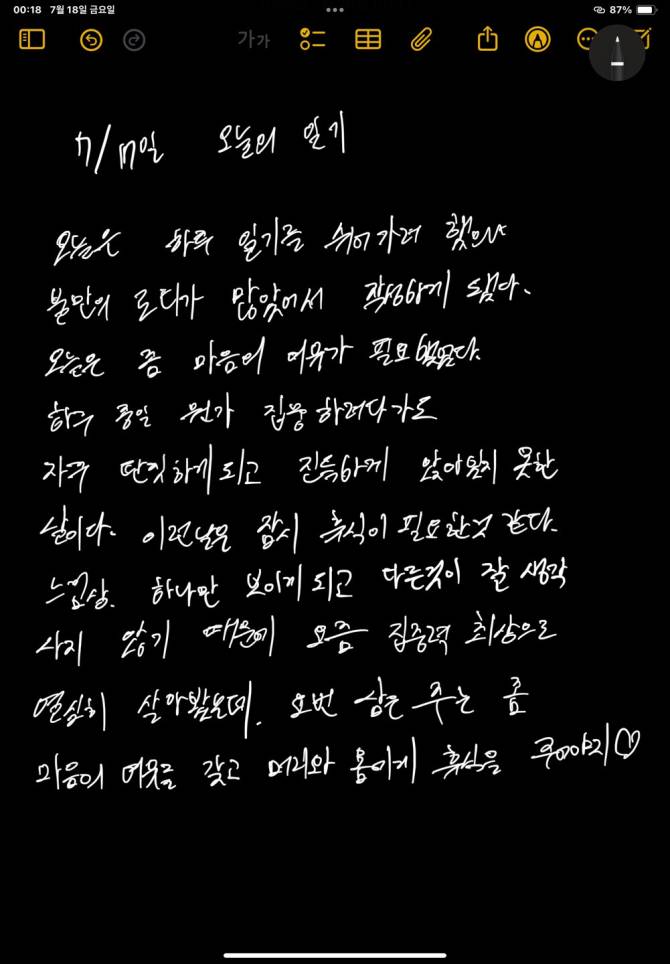 00:18 7월 18일 금요일
87%
가가
7/17일 오늘의 일기
오늘은 하루 일기를 쉬어가려 했으나
불만의 로디가 많았어서 작성하게 됐다.
오늘은 좀 마음의 여유가 필요했었다.
하루 종일 뭔가 집중하려다가도
자꾸 딴짓하게되고 진득하게 앉아있지 못한
날이다. 이런날은 잠시 휴식이 필요한것 같다.
느낌상. 하나만 보이게 되고 다른것이 잘 생각
나지 않기 때문에 요즘 집중력 최상으로
열심히 살아봤는데. 요번 주는 좀
마음의 여유를 갖고 머리와 몸에게 휴식을 주어야지♡